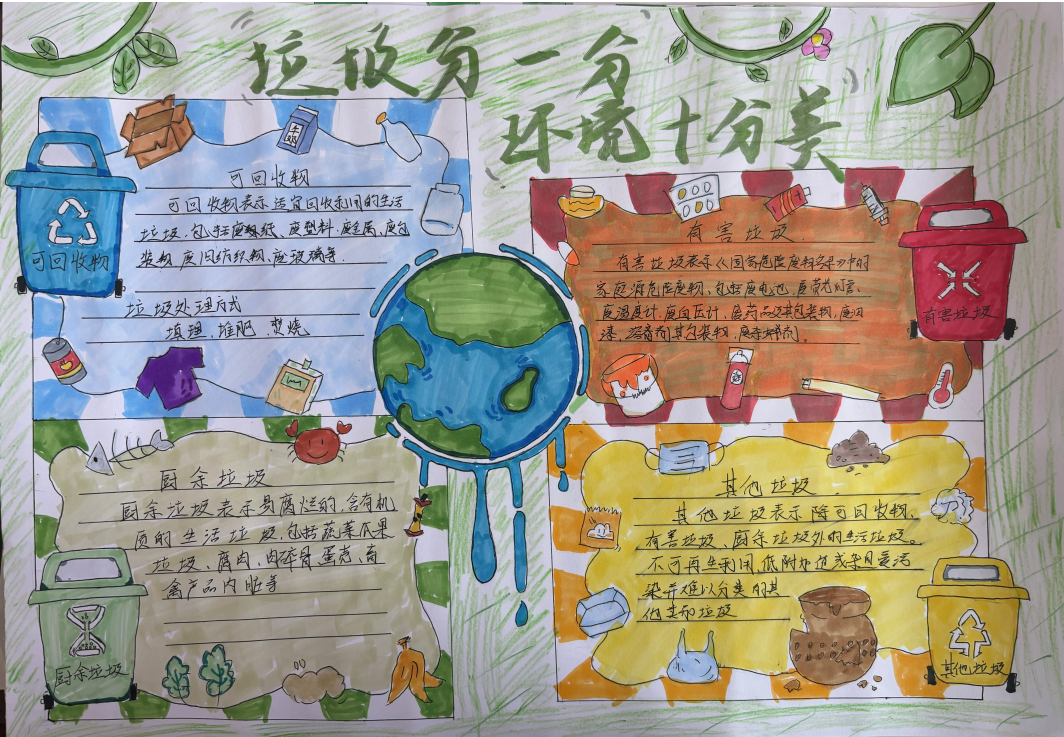 垃圾分一分
环境十分美
可回收物
可回收物表示适宜回收利用的生活
垃圾,包括废纸、废塑料、废金属、废包
装物、废旧纺织物、废玻璃等.
垃圾处理方式
填埋、堆肥、焚烧
可回收物
牛奶
有害垃圾
有害垃圾表示《国家危险废物名录》中的
家庭源危险废物,包括废电池、废荧光灯管、
废温度计、废血压计、废药品及其包装物,废油
漆、溶剂其包装物、废杀虫剂。
有害垃圾
厨余垃圾
厨余垃圾表示易腐烂的,含有机
质的生活垃圾,包括蔬菜瓜果
垃圾、腐肉、肉碎骨、蛋壳、畜
禽产品内脏等
厨余垃圾
其他垃圾
其他垃圾表示除可回收物、
有害垃圾、厨余垃圾外的生活垃圾。
不可再生利用,低附加值或
染并难以分类的其
他其却垃圾
其他垃圾